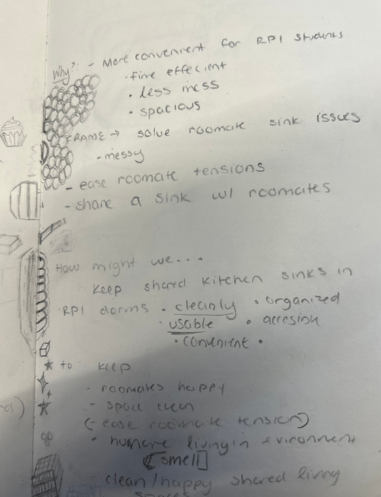 Why? - More convenient for RPI students
· time effecient
· less mess
· spacious
FRAME → solve roomate sink issues
· messy
- ease roomate tensions
- share a sink w/ roomates
How might we...
keep shared kitchen sinks in
RPI dorms · cleanly · organized
· usable ·
· convenient ·
to keep
- roomates happy
- space clean
(- ease roomate tension)
· humane living in environment
[smell]
clean/happy shared living
spaces